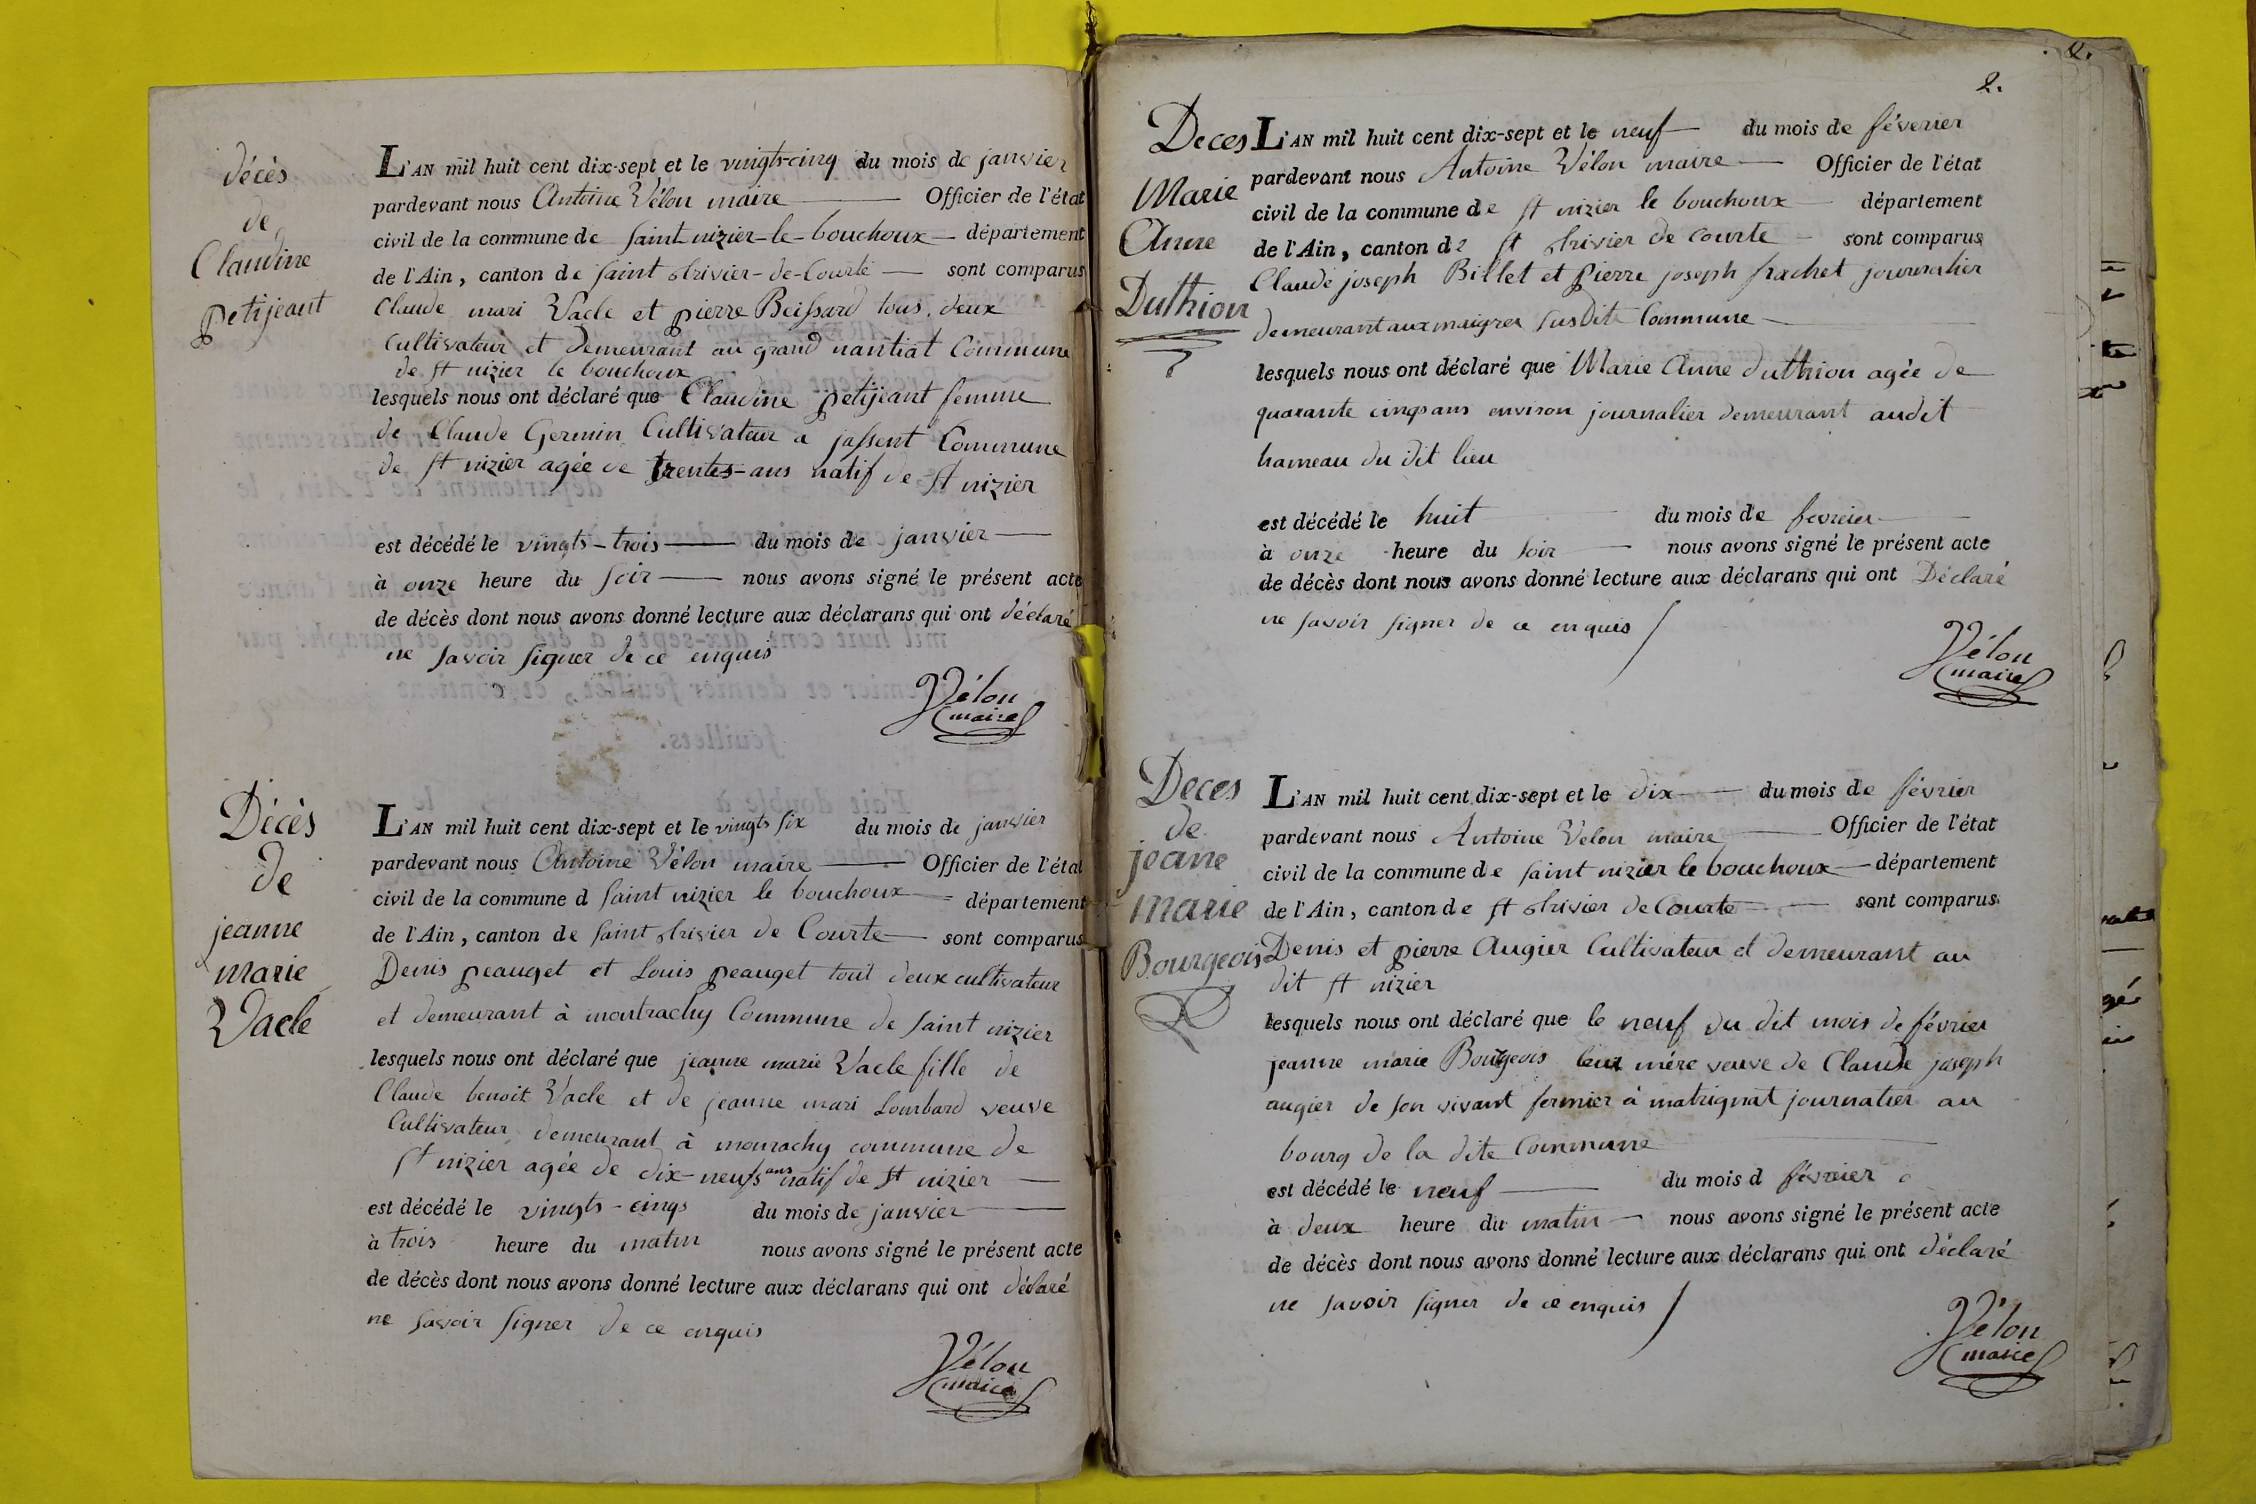 décès
de
Claudine
petijeant
L'AN mil huit cent dix-sept et le vingts-cinq du mois de janvier
pardevant nous Antoine Vélon maire Officier de l'état
civil de la commune de saint nizier-le-bouchoux département
de l'Ain, canton de saint trivier-de-Courte sont comparus
Claude mari Vacle et pierre Beissard tous deux
Cultivateur et Demeurant au grand nantiat Commune
de st nizier le bouchoux
lesquels nous ont déclaré que Claudine petijeant femme
de Claude Germin Cultivateur a jassent Commune
de st nizier agée de trentes-ans natif de st nizier
est décédé le vingts-trois du mois de janvier
à onze heure du soir nous avons signé le présent acte
de décès dont nous avons donné lecture aux déclarans qui ont déclaré
ne savoir signer de ce enquis
Vélon
maire
Décès
de
jeanne
marie
Vacle
L'AN mil huit cent dix-sept et le vingts six du mois de janvier
pardevant nous Antoine Vélon maire Officier de l'état
civil de la commune d saint nizier le bouchoux département
de l'Ain, canton de saint trivier de Courte sont comparus
Denis peauget et Louis peauget tout deux cultivateur
et demeurant à montrachy Commune de saint nizier
lesquels nous ont déclaré que jeanne marie Vacle fille de
Claude benoit Vacle et de jeanne mari Lombard veuve
Cultivateur demeurant à mourachy commune de
st nizier agée de dix-neufs ans natif de st nizier
est décédé le vingts-cinqs du mois de janvier
à trois heure du matin nous avons signé le présent acte
de décès dont nous avons donné lecture aux déclarans qui ont déclaré
ne savoir signer de ce enquis
Vélon
maire
2.
Deces
Marie
Anne
Duthion
L'AN mil huit cent dix-sept et le neuf du mois de féverier
pardevant nous Antoine Vélon maire Officier de l'état
civil de la commune de st nizier le bouchoux département
de l'Ain, canton de st trivier de courte sont comparus
Claude joseph Billet et pierre joseph frachet journalier
demeurant aux maigres susdite Commune
lesquels nous ont déclaré que Marie Anne duthion agée de
quarante cinqs ans environ journalier demeurant audit
hameau du dit lieu
est décédé le huit du mois de fevreier
à onze heure du soir nous avons signé le présent acte
de décès dont nous avons donné lecture aux déclarans qui ont Déclaré
ne savoir signer de ce enquis
Vélon
maire
Deces
de
jeane
marie
Bourgeois
L'AN mil huit cent dix-sept et le dix du mois de février
pardevant nous Antoine Velon maire Officier de l'état
civil de la commune de saint nizier le bouchoux département
de l'Ain, canton de st trivier de Courte sont comparus
Denis et pierre Augier Cultivateur et demeurant au
dit st nizier
lesquels nous ont déclaré que le neuf du dit mois de février
jeanne marie Bourgeois leur mére veuve de Claude joseph
augier de son vivant fermier à matrignat journalier au
bourg de la dite Commune
est décédé le neuf du mois d février
à deux heure du matin nous avons signé le présent acte
de décès dont nous avons donné lecture aux déclarans qui ont déclaré
ne savoir signer de ce enquis
Vélon
maire